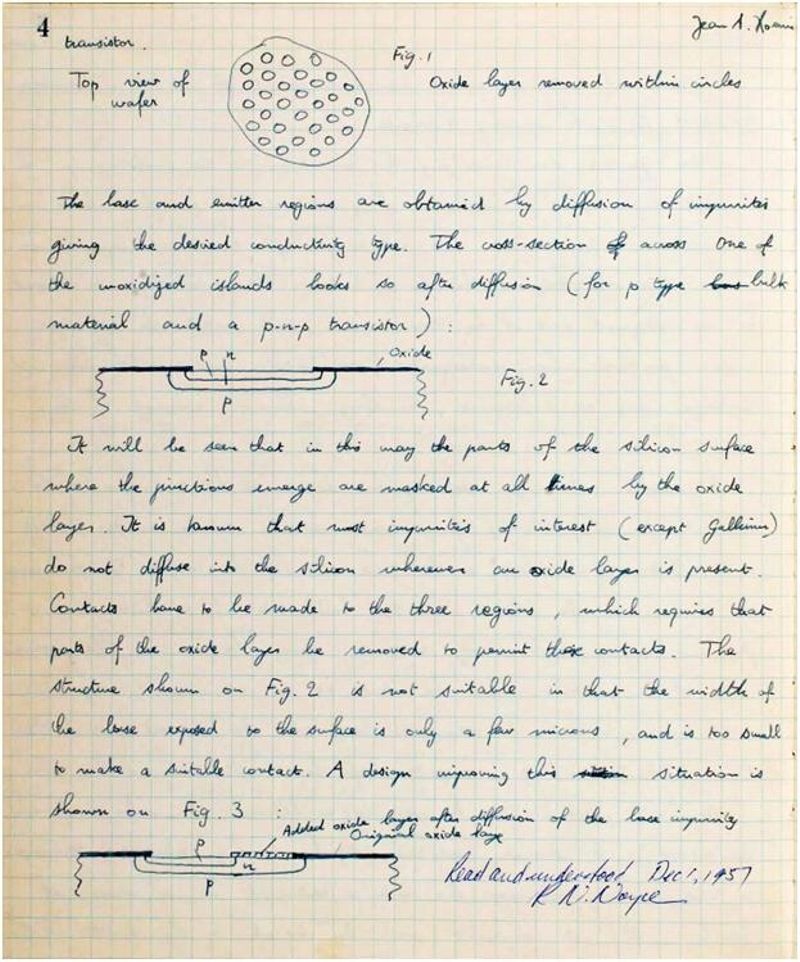 4
Jean A. Hoerni
transistor.
Fig. 1
Top view of wafer
Oxide layer removed within circles
The base and emitter regions are obtained by diffusion of impurities
giving the desired conducting type. The cross-section of across one of
the unoxidized islands looks so after diffusion (for p type bulk
material and a p-n-p transistor) :
p n
Oxide
Fig. 2
p
It will be seen that in this way the parts of the silicon surface
where the junctions emerge are masked at all times by the oxide
layer. It is known that most impurities of interest (except Gallium)
do not diffuse into the silicon whenever an oxide layer is present.
Contacts have to be made to the three regions, which requires that
parts of the oxide layer be removed to permit these contacts. The
structure shown on Fig. 2 is not suitable in that the width of
the base exposed to the surface is only a few microns, and is too small
to make a suitable contact. A design improving this situation is
shown on Fig. 3 :
Added oxide layer after diffusion of the base impurity
Original oxide laye
p
n
p
Read and understood Dec 1, 1957
R N. Noyce